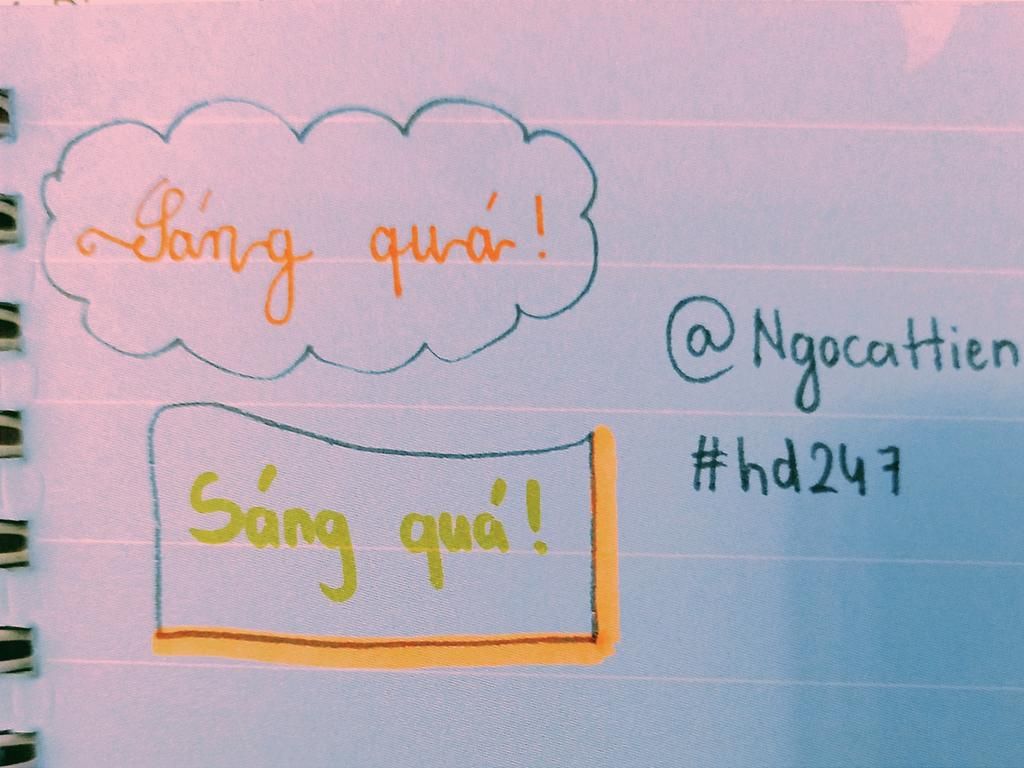 Sáng quá!
Sáng quá!
@Ngocattien
#hd247